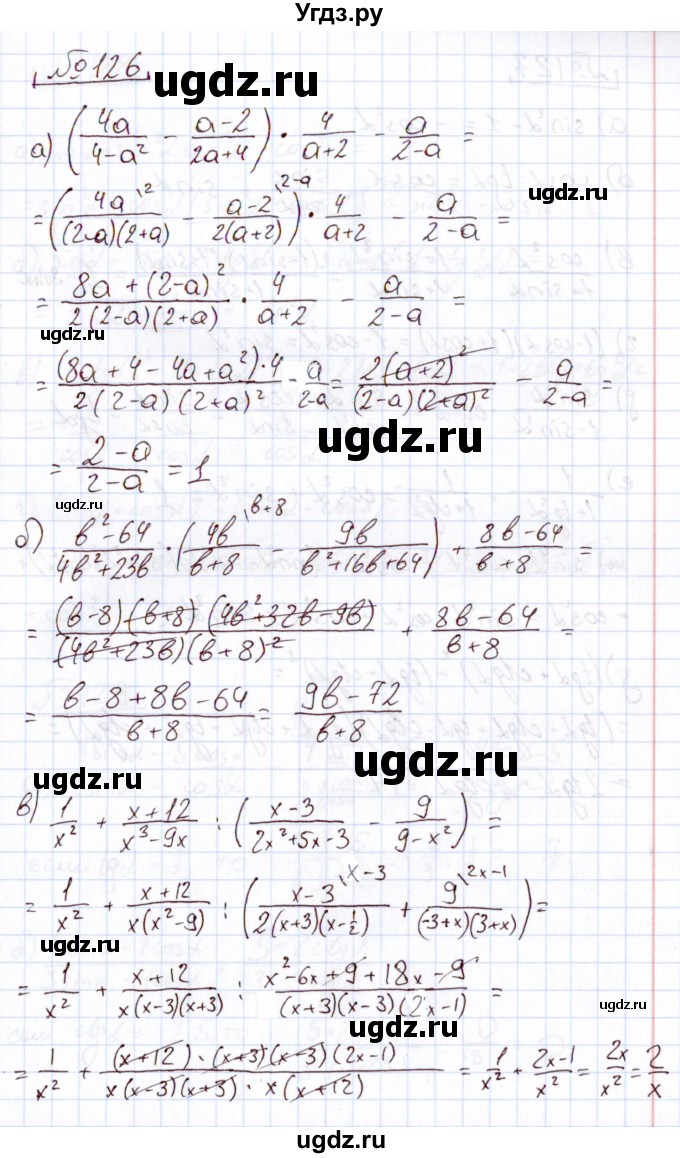 Угдз.ру
№126
ugdz.ru
а) (4a/(4-a²) - (a-2)/(2a+4)) · 4/(a+2) - a/(2-a) =
ugdz.ru
= (4a\²/((2-a)(2+a)) - (a-2)\²⁻ᵃ/(2(a+2))) · 4/(a+2) - a/(2-a) =
= (8a+(2-a)²)/(2(2-a)(2+a)) · 4/(a+2) - a/(2-a) =
ugdz.ru
= ((8a+4-4a+a²)·4)/(2(2-a)(2+a)²) - a/(2-a) = 2(a+2)²/((2-a)(2+a)²) - a/(2-a) =
ugdz.ru
= (2-a)/(2-a) = 1
ugdz.ru
б) (b²-64)/(4b²+23b) · (4b\ᵇ⁺⁸/(b+8) - 9b/(b²+16b+64)) + (8b-64)/(b+8) =
= ((b-8)(b+8)(4b²+32b-9b))/((4b²+23b)(b+8)²) + (8b-64)/(b+8) =
= (b-8+8b-64)/(b+8) = (9b-72)/(b+8)
ugdz.ru
ugdz.ru
в) 1/x² + (x+12)/(x³-9x) : ((x-3)/(2x²+5x-3) - 9/(9-x²)) =
= 1/x² + (x+12)/(x(x²-9)) : ((x-3)\ˣ⁻³/(2(x+3)(x-½)) + 9\²ˣ⁻¹/((-3+x)(3+x))) =
ugdz.ru
= 1/x² + (x+12)/(x(x-3)(x+3)) : (x²-6x+9+18x-9)/((x+3)(x-3)(2x-1)) =
ugdz.ru
ugdz.ru
= 1/x² + ((x+12)·(x+3)(x-3)(2x-1))/(x(x-3)(x+3)·x(x+12)) = 1/x² + (2x-1)/x² = 2x/x² = 2/x
ugdz.ru